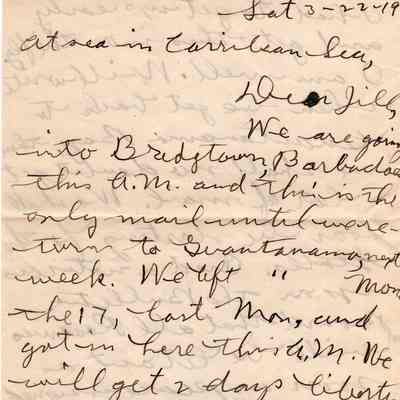 Sat 3-22-19
At sea in Carribean Sea,
Dear Jill,
We are going
into Bridgtown, Barbadoes
this A.M. and this is the
only mail until we re-
turn to Guantanamo, next
week. We left " Mon
the 17, last Mon, and
got in here this A.M. We
will get 2 days liberty